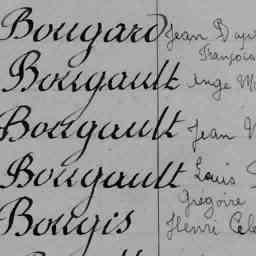 Bougard Jean Bapt
François
Bougault Ange M
Bougault Jean
Bougault Louis
Grégoire
Bougis Henri Cel